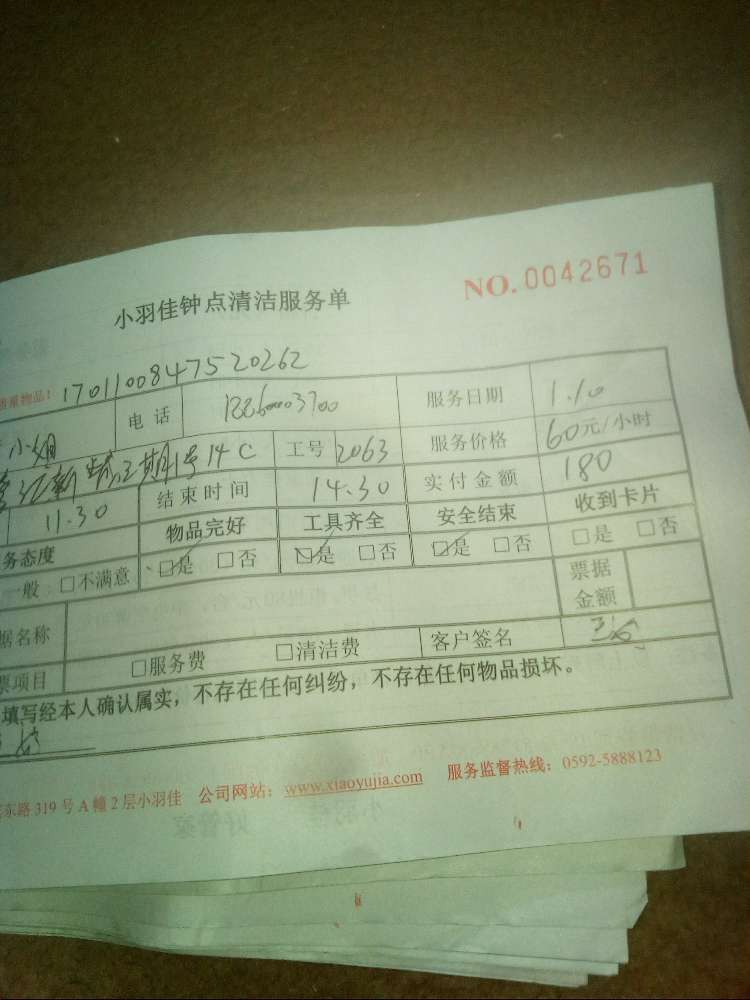 NO.0042671
小羽佳钟点清洁服务单
物品: 1701100847520262
小姐 电话 服务日期 1.10
期1号14C 工号 2063 服务价格 60元/小时
11.30 结束时间 14.30 实付金额 180
务态度 物品完好 工具齐全 安全结束 收到卡片
般 □不满意 □是 □否 □是 □否 □是 □否 □是 □否
据名称 票据金额
票项目 □服务费 □清洁费 客户签名
填写经本人确认属实，不存在任何纠纷，不存在任何物品损坏。
东路319号A幢2层小羽佳 公司网站：www.xiaoyujia.com 服务监督热线：0592-5888123